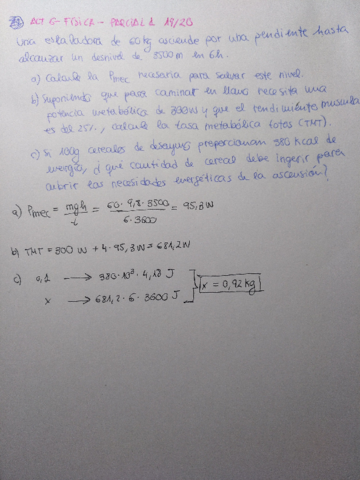 ACT 6 - FÍSICA - PARCIAL 1 19/20
Una escaladora de 60 kg asciende por una pendiente hasta
alcanzar un desnivel de 3500 m en 6h.
a) Calcule la Pmec necesaria para salvar este nivel.
b) Suponiendo que para caminar en llano necesita una
potencia metabólica de 300W y que el rendimiento muscular
es del 25%, calcule la tasa metabólica total (TMT).
c) Si 100g cereales de desayuno proporcionan 380 kcal de
energía, ¿qué cantidad de cereal debe ingerir para
cubrir las necesidades energéticas de la ascensión?
a) Pmec = mgh / t = 60 · 9,8 · 3500 / 6 · 3600 = 95,3 W
b) TMT = 300 W + 4 · 95,3W = 681,2 W
c) 0,1 → 380·10³ · 4,18 J
x → 681,2 · 6 · 3600 J
x = 0,92 kg